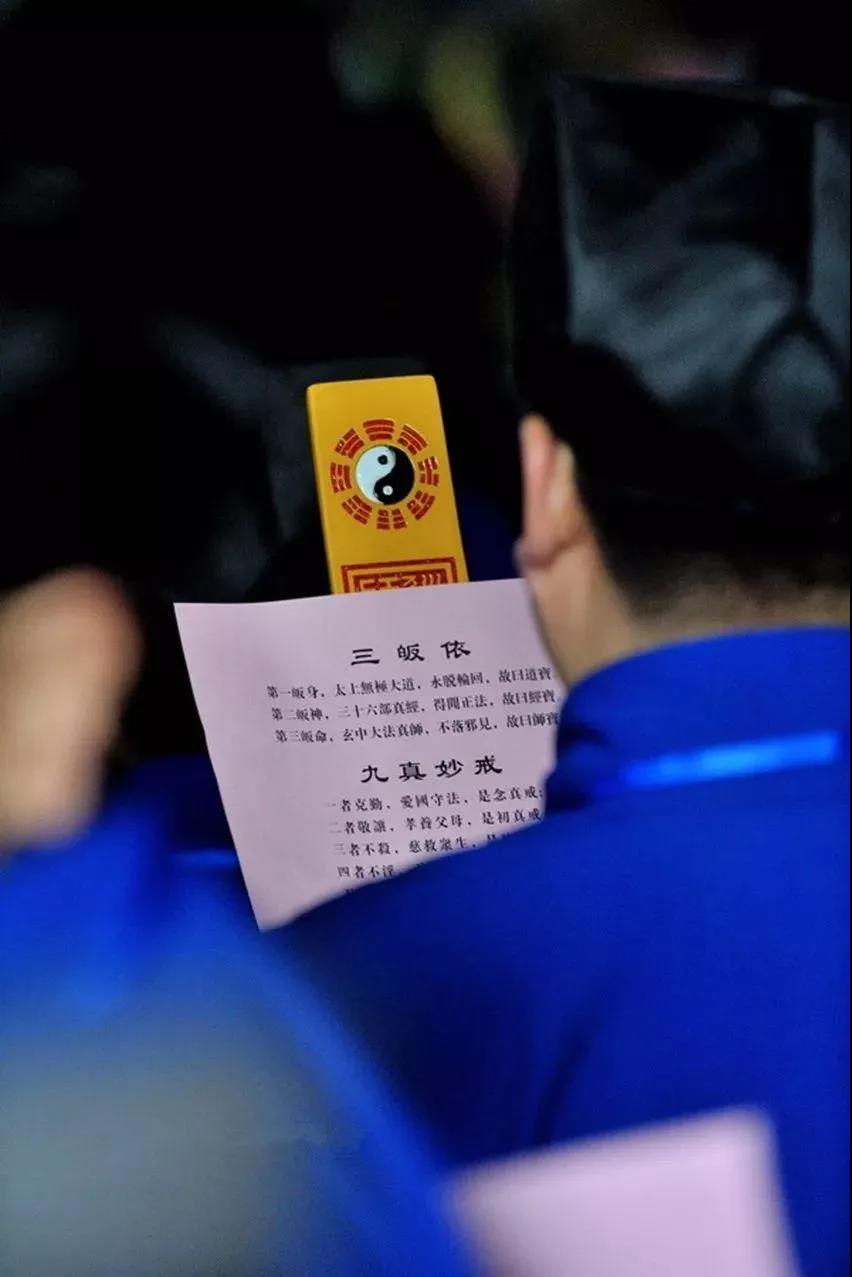 三皈依
第一皈身，太上無極大道，永脱輪回，故曰道寶，
第二皈神，三十六部真經，得聞正法，故曰經寶，
第三皈命，玄中大法真師，不落邪見，故曰師寶
九真妙戒
一者克勤，愛國守法，是念真戒；
二者敬讓，孝養父母，是初真戒
三者不殺，慈救衆生，是
四者不淫，